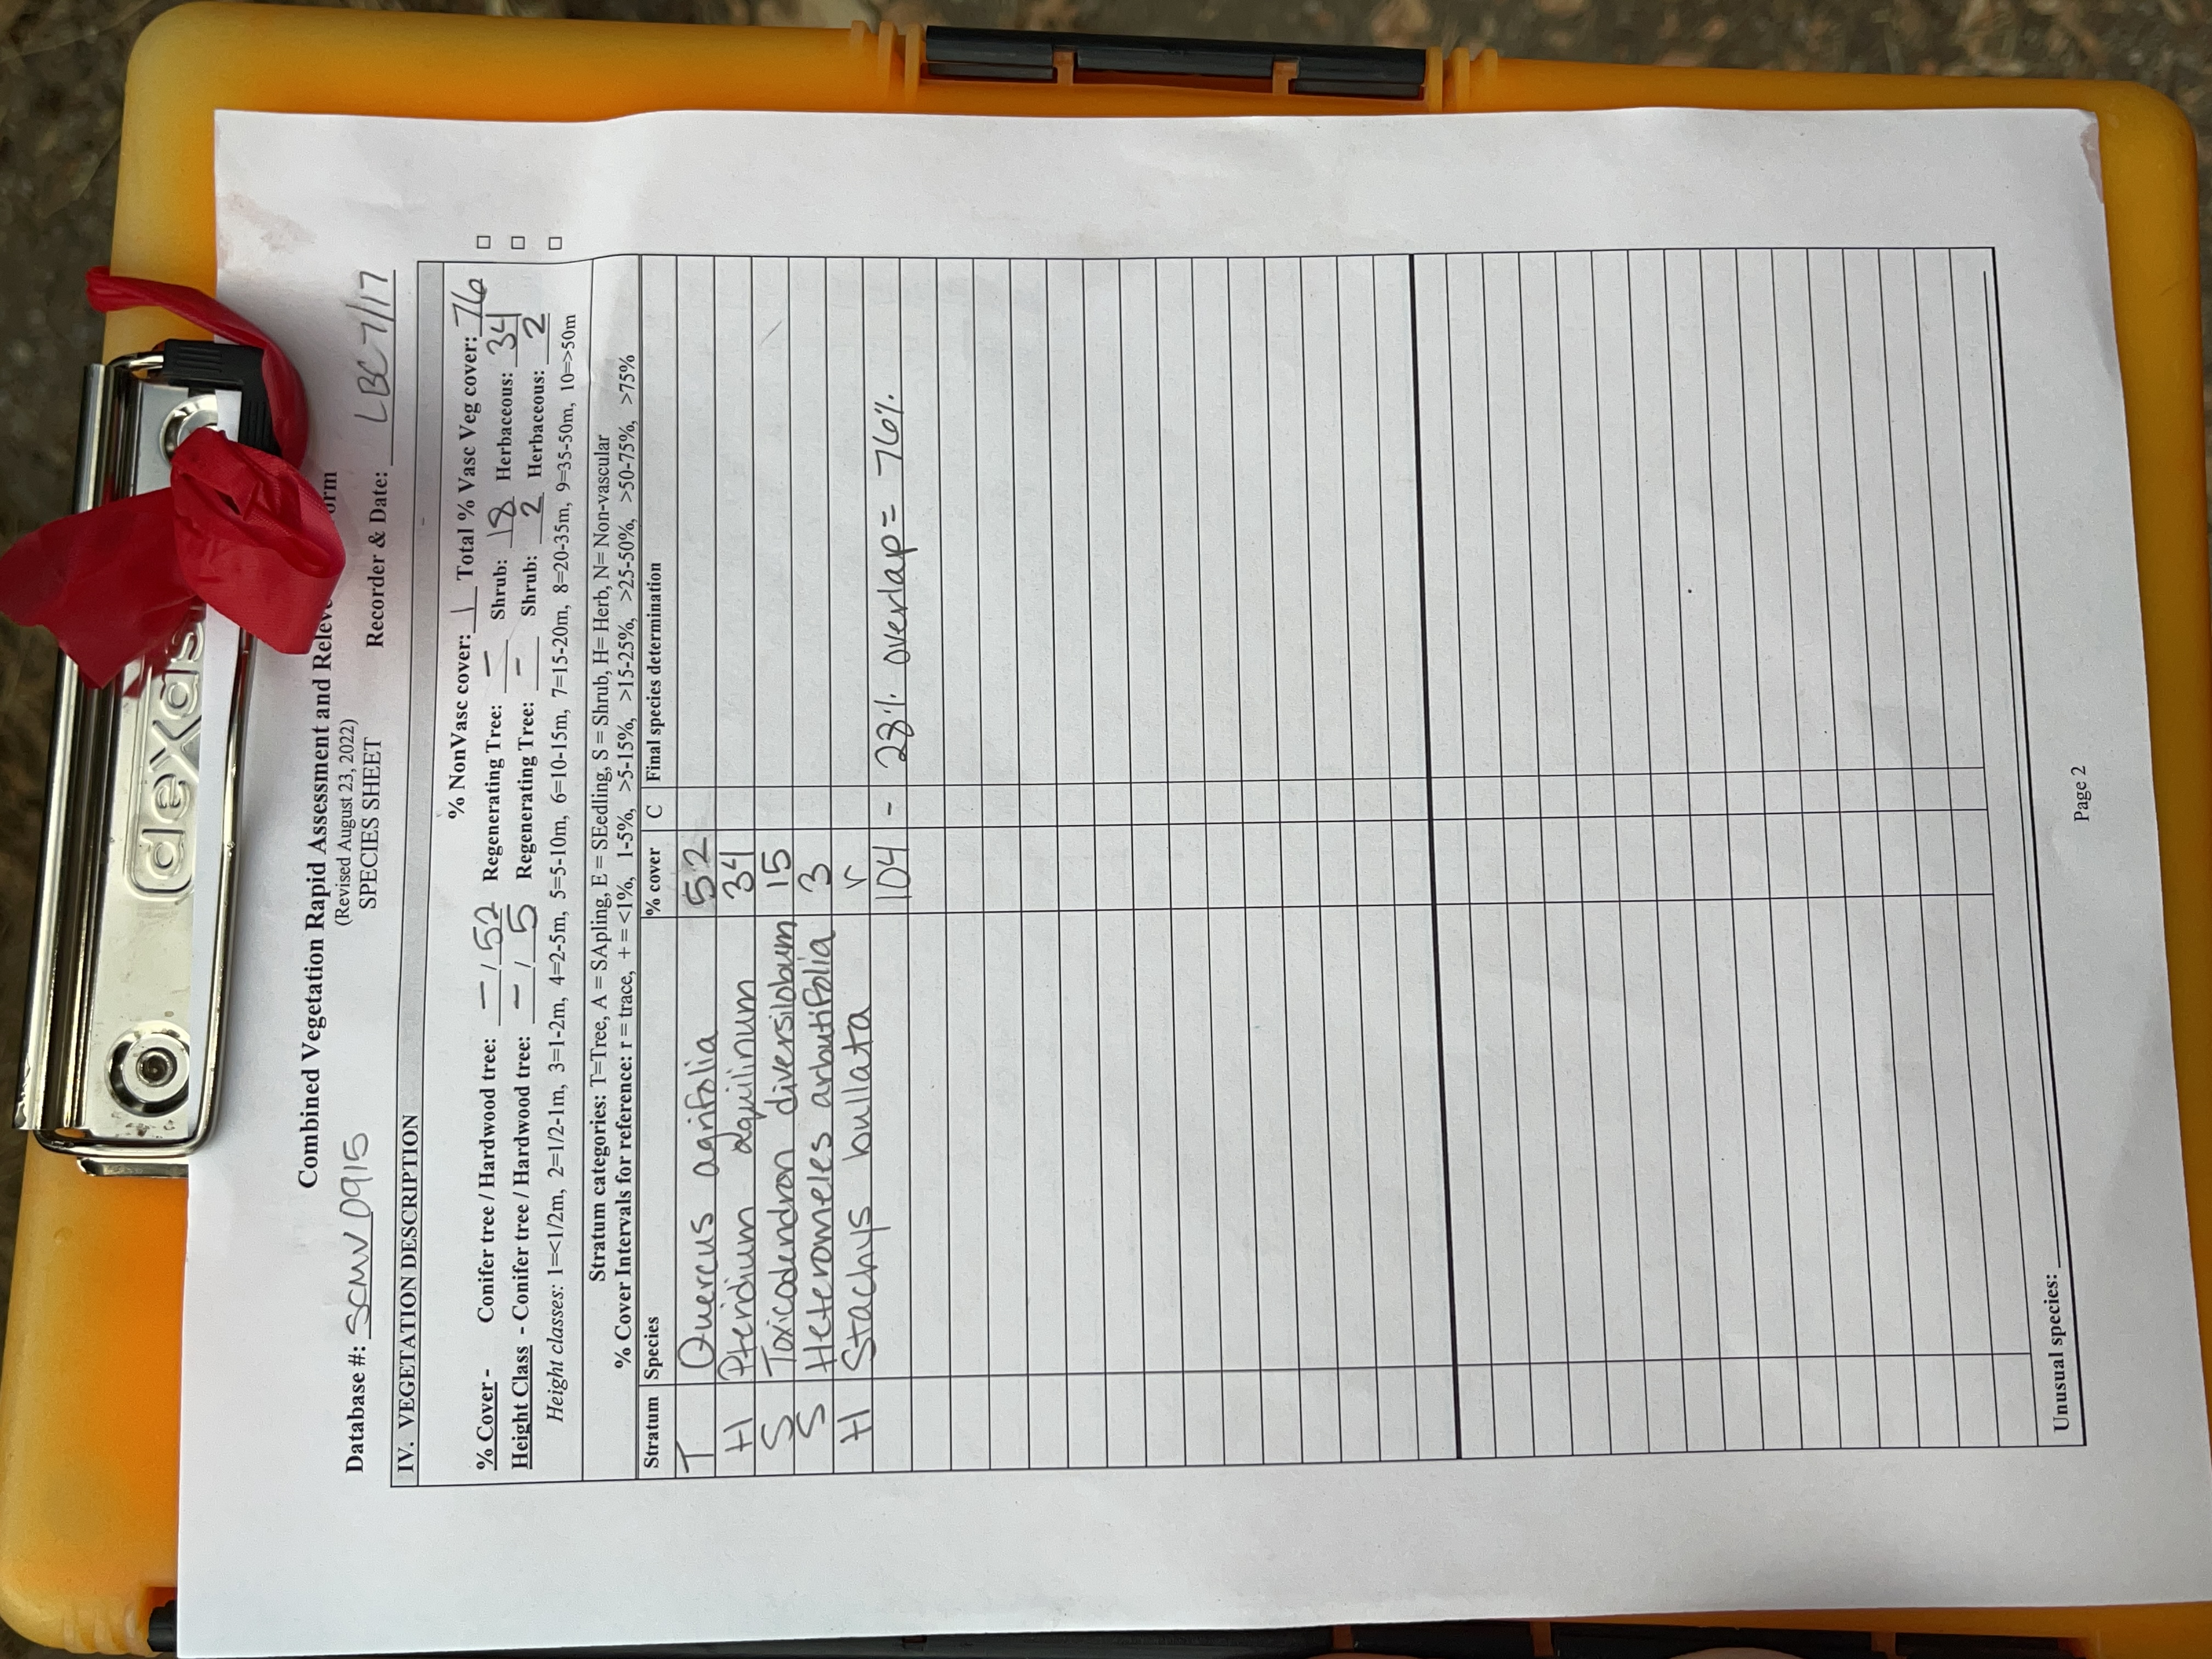 dexas
Combined Vegetation Rapid Assessment and Relevé Form
(Revised August 23, 2022)
SPECIES SHEET
Database #: SCMV0915 Recorder & Date: LBC 7/17
IV. VEGETATION DESCRIPTION
% NonVasc cover: 1 Total % Vasc Veg cover: 76 □
% Cover - Conifer tree / Hardwood tree: - / 52 Regenerating Tree: - Shrub: 18 Herbaceous: 34 □
Height Class - Conifer tree / Hardwood tree: - / 5 Regenerating Tree: - Shrub: 2 Herbaceous: 2 □
Height classes: 1=<1/2m, 2=1/2-1m, 3=1-2m, 4=2-5m, 5=5-10m, 6=10-15m, 7=15-20m, 8=20-35m, 9=35-50m, 10=>50m
Stratum categories: T=Tree, A = SApling, E = SEedling, S = Shrub, H= Herb, N= Non-vascular
% Cover Intervals for reference: r = trace, + = <1%, 1-5%, >5-15%, >15-25%, >25-50%, >50-75%, >75%
Stratum Species % cover C Final species determination
T Quercus agrifolia 52
H Pteridium aquilinum 34
S Toxicodendron diversilobum 15
S Heteromeles arbutifolia 3
H Stachys bullata r
104 - 28% overlap = 76%
Unusual species:
Page 2